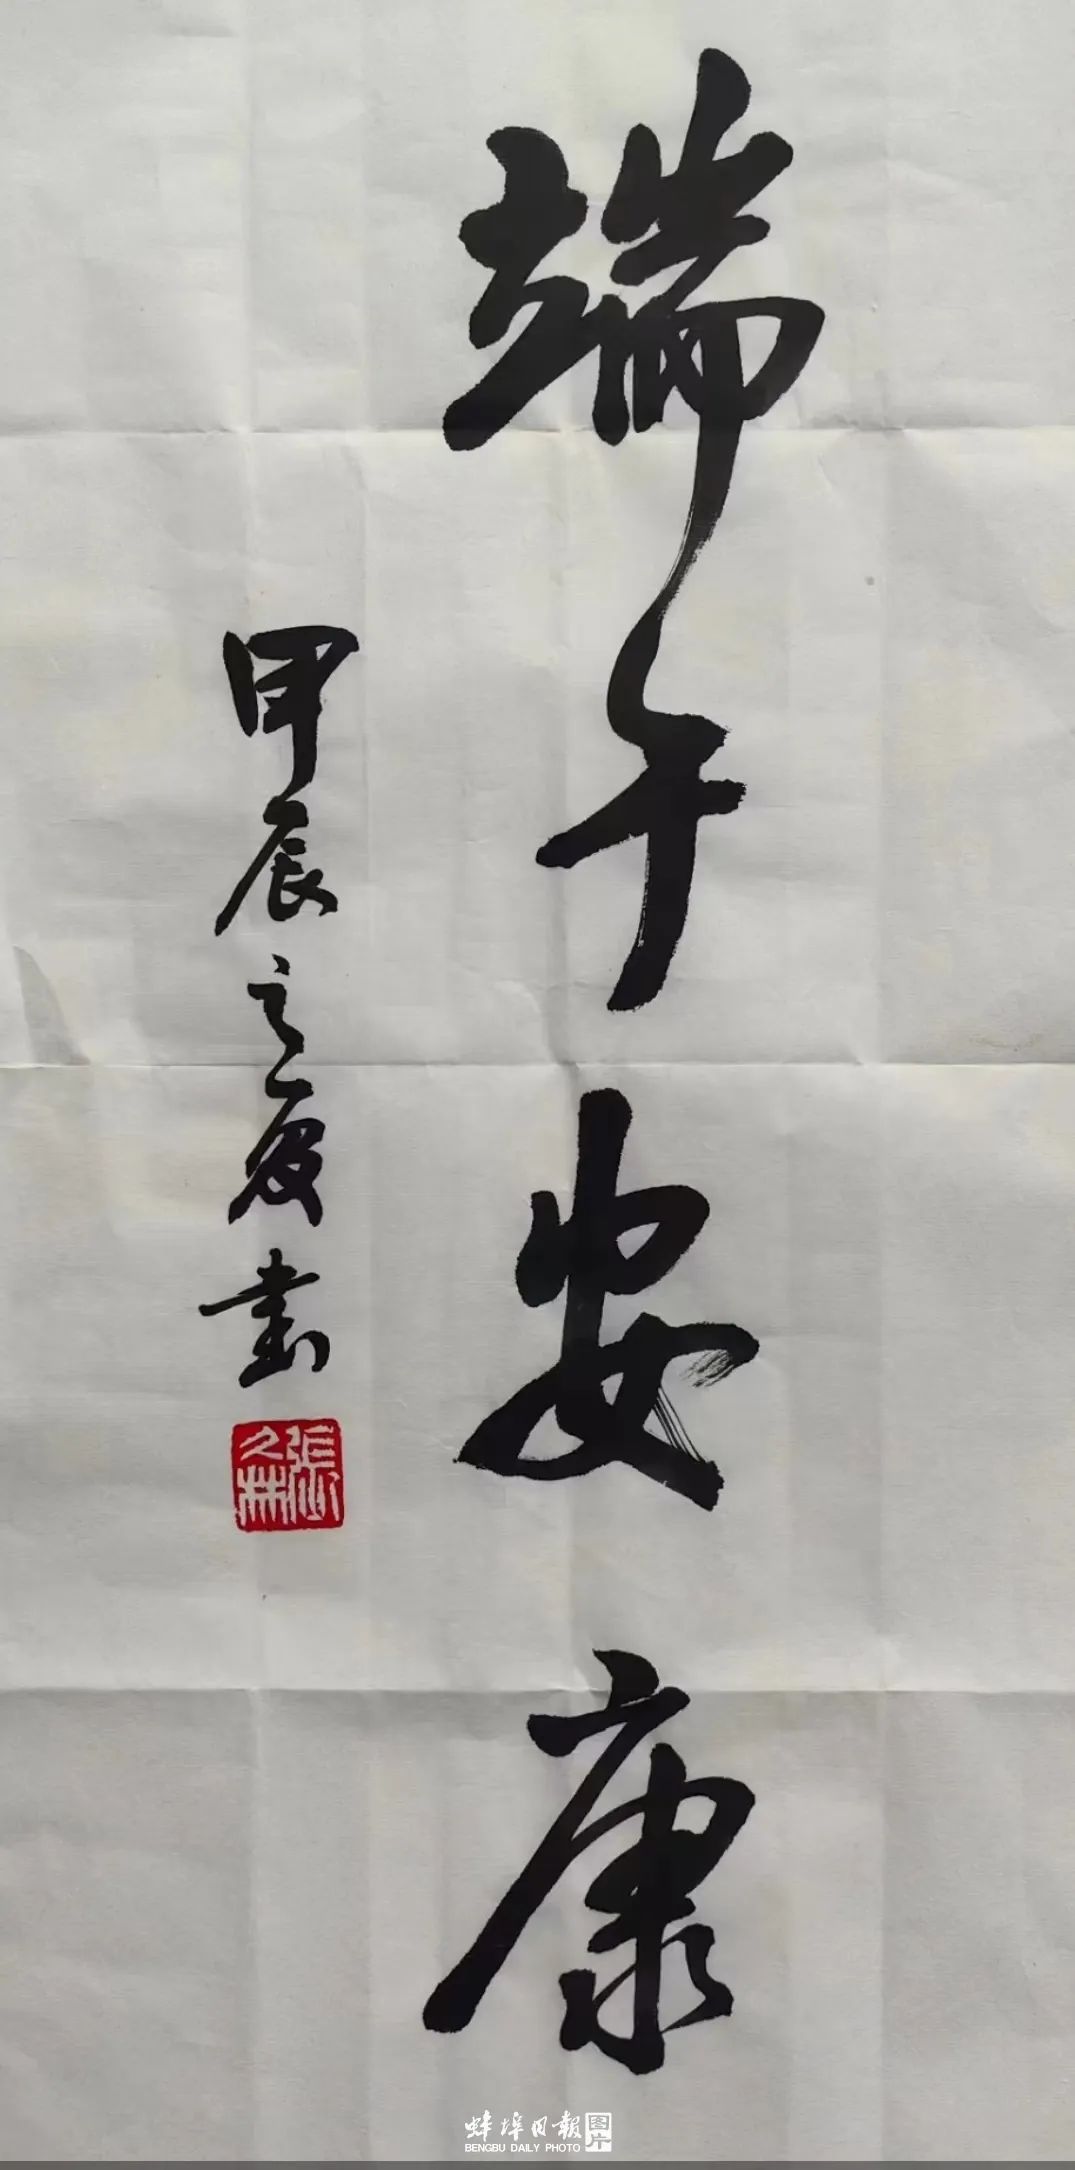 端午安康
甲辰之夏书
蚌埠日報 图片
BENGBU DAILY PHOTO